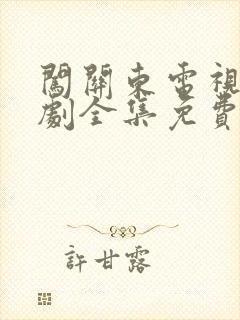 闖關東電視
劇全集免費
許甘露